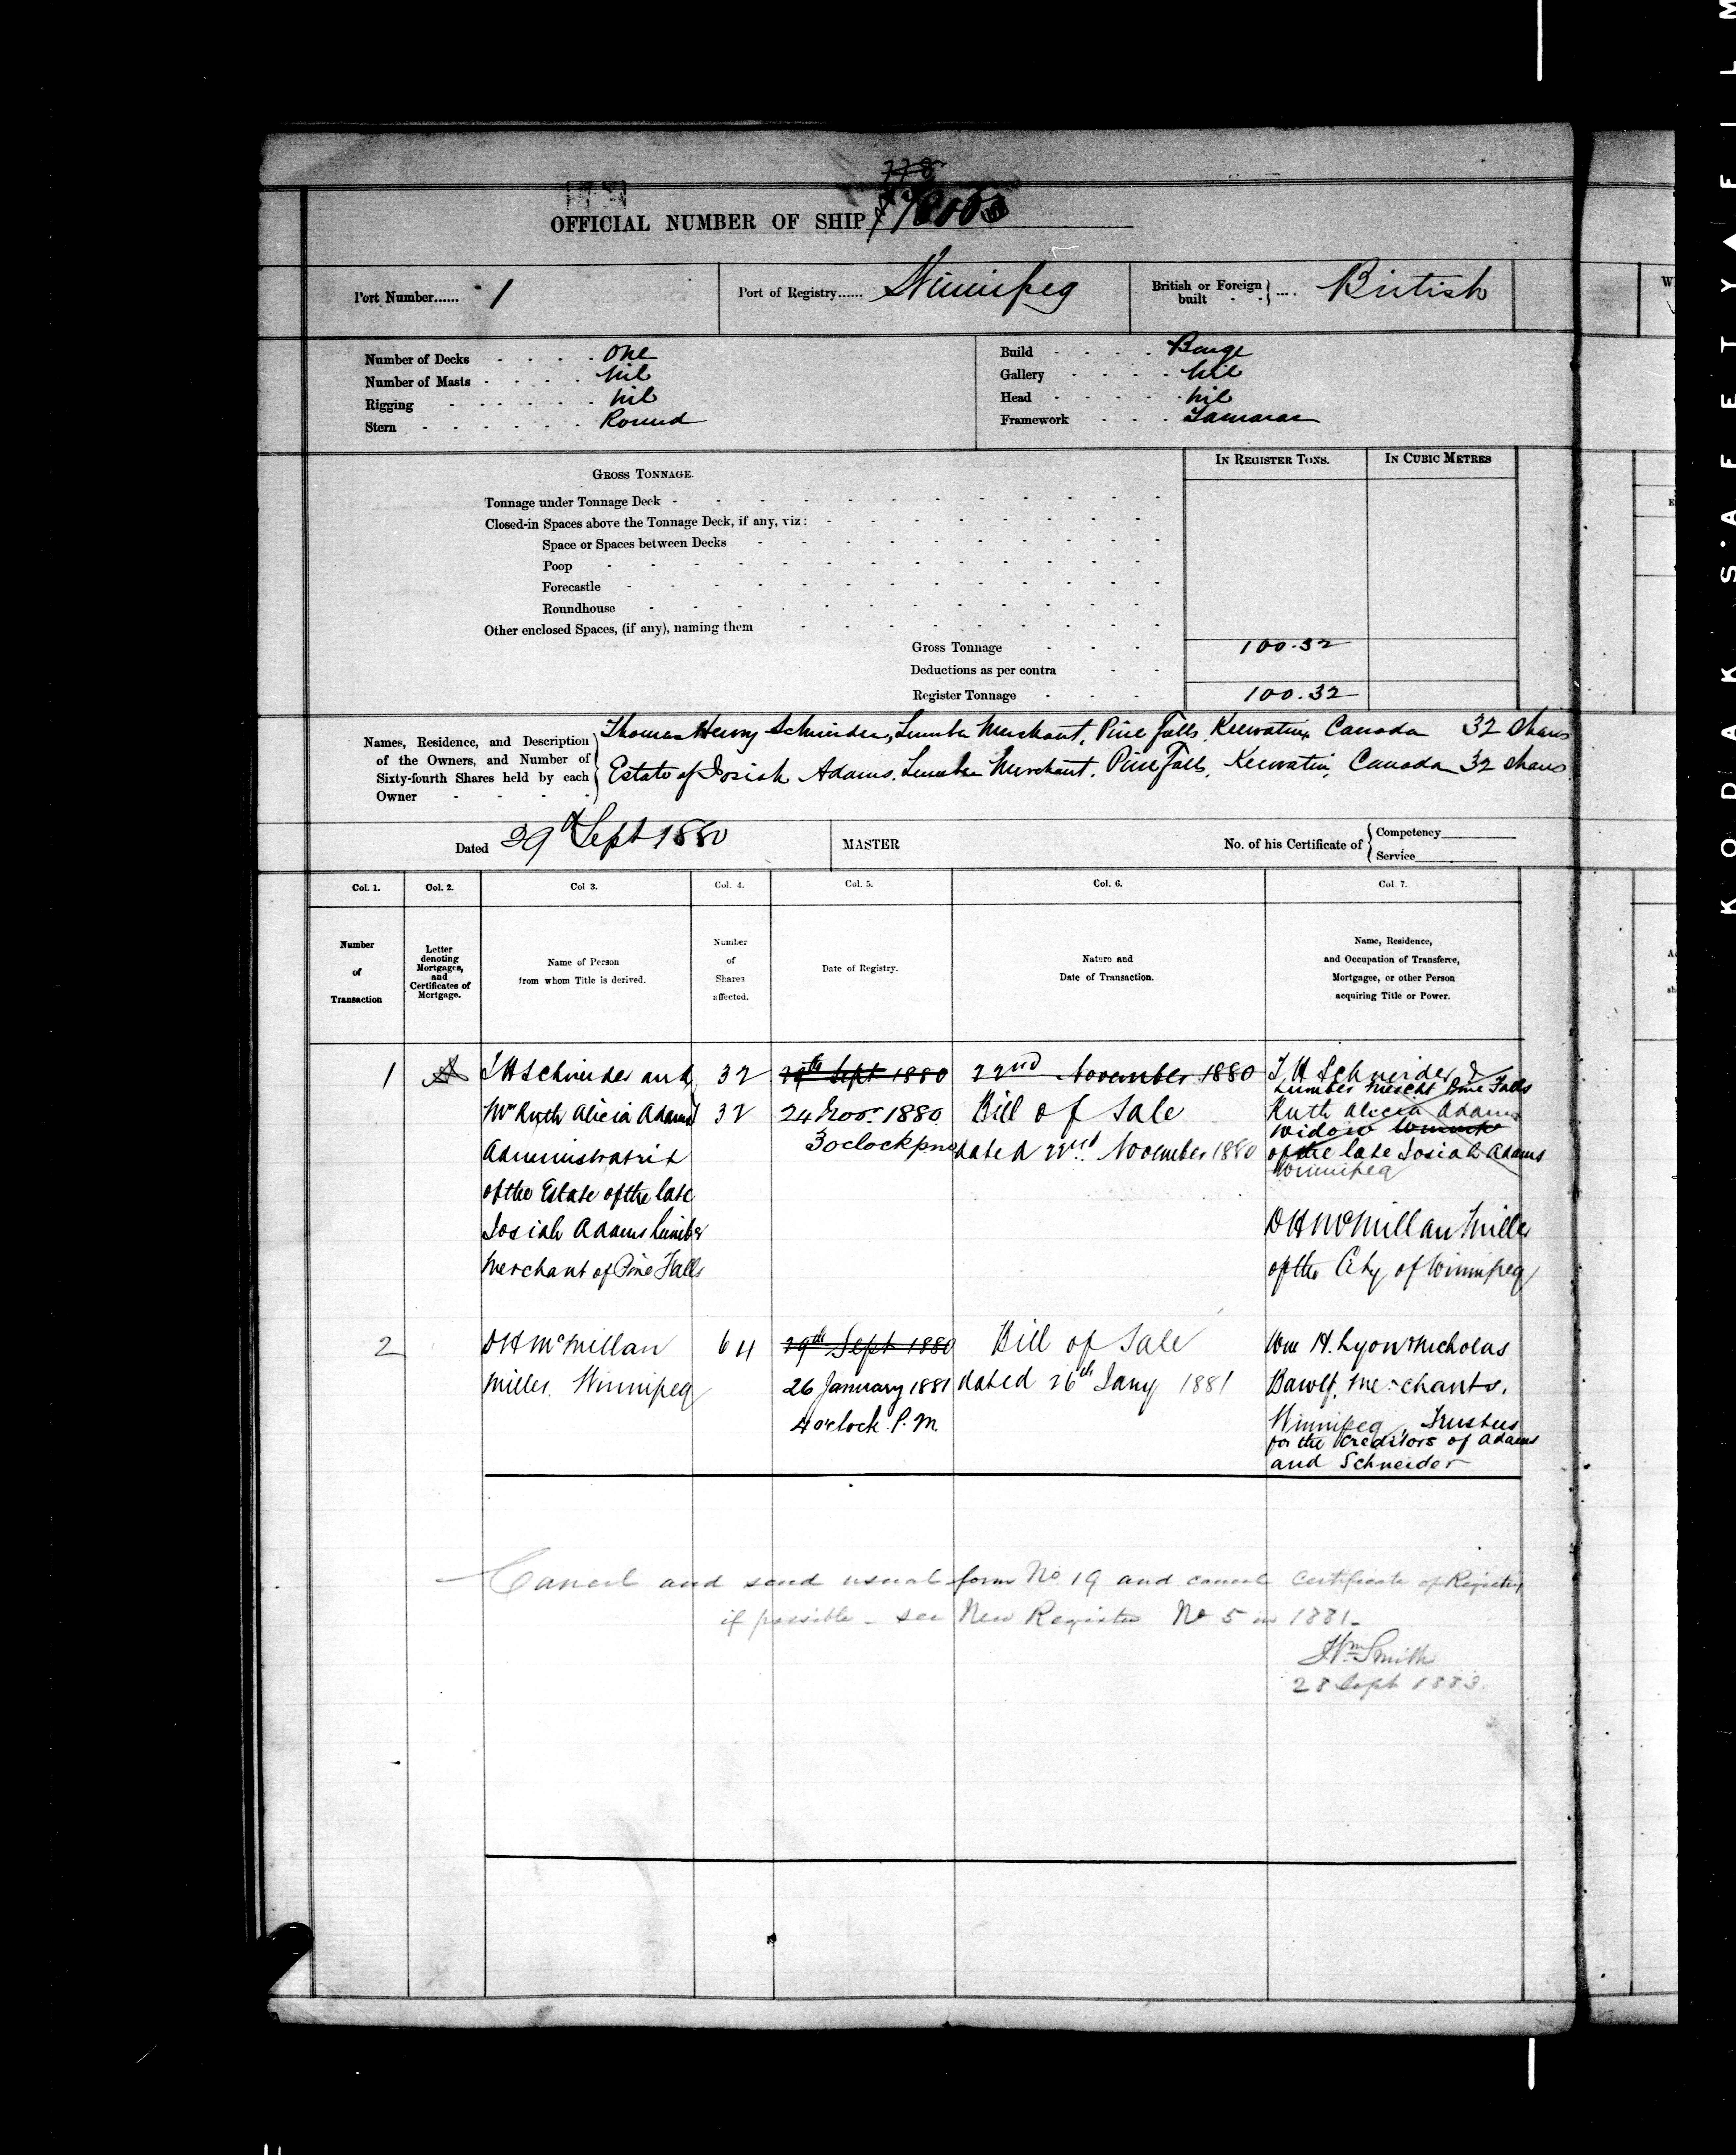 778
OFFICIAL NUMBER OF SHIP
Port Number...... 1
Port of Registry...... Winnipeg
British or Foreign built - - } .... British
Number of Decks - - - - One
Number of Masts - - - - nil
Rigging - - - - - - nil
Stern - - - - - - Round
Build - - - - Barge
Gallery - - - - nil
Head - - - - nil
Framework - - - Tamarac
GROSS TONNAGE.
IN REGISTER TONS.
IN CUBIC METRES
Tonnage under Tonnage Deck
Closed-in Spaces above the Tonnage Deck, if any, viz:
Space or Spaces between Decks
Poop
Forecastle
Roundhouse
Other enclosed Spaces, (if any), naming them
Gross Tonnage - - - 100.32
Deductions as per contra - -
Register Tonnage - - - 100.32
Names, Residence, and Description of the Owners, and Number of Sixty-fourth Shares held by each Owner - - - -
Thomas Henry Schneider, Lumber Merchant, Pine Falls, Keewatin, Canada 32 shares
Estate of Josiah Adams. Lumber Merchant. Pine Falls, Keewatin, Canada 32 shares
Dated 29th Sept 1880
MASTER
No. of his Certificate of { Competency
Service
Col. 1.
Col. 2.
Col 3.
Col. 4.
Col. 5.
Col. 6.
Col. 7.
Number of Transaction
Letter denoting Mortgages, and Certificates of Mortgage.
Name of Person from whom Title is derived.
Number of Shares affected.
Date of Registry.
Nature and Date of Transaction.
Name, Residence, and Occupation of Transferee, Mortgagee, or other Person acquiring Title or Power.
1
A
T H Schneider and
Mrs Ruth Alicia Adams
Administratrix
of the Estate of the late
Josiah Adams lumber
Merchant of Pine Falls
32
32
29th Sept 1880
24 Novr 1880
3 oclock pm
22nd November 1880
Bill of Sale
dated 22nd November 1880
T. H Schneider &
Lumber Mercht Pine Falls
Ruth Alicia Adams
widow
of the late Josiah Adams
Winnipeg
D H McMillan Miller
of the City of Winnipeg
2
D H McMillan
Miller. Winnipeg
64
29th Sept 1880
26 January 1881
4 o'clock P.M.
Bill of Sale
dated 26th Jany 1881
Wm H. Lyon & Nicholas
Bawlf, Merchants,
Winnipeg, Trustees
for the Creditors of Adams
and Schneider
Cancel and send usual form No 19 and cancel Certificate of Registry
if possible - see New Register No 5 in 1881-
Wm Smith
28 Sept 1883.
KODAK S'AFETY▲FILM